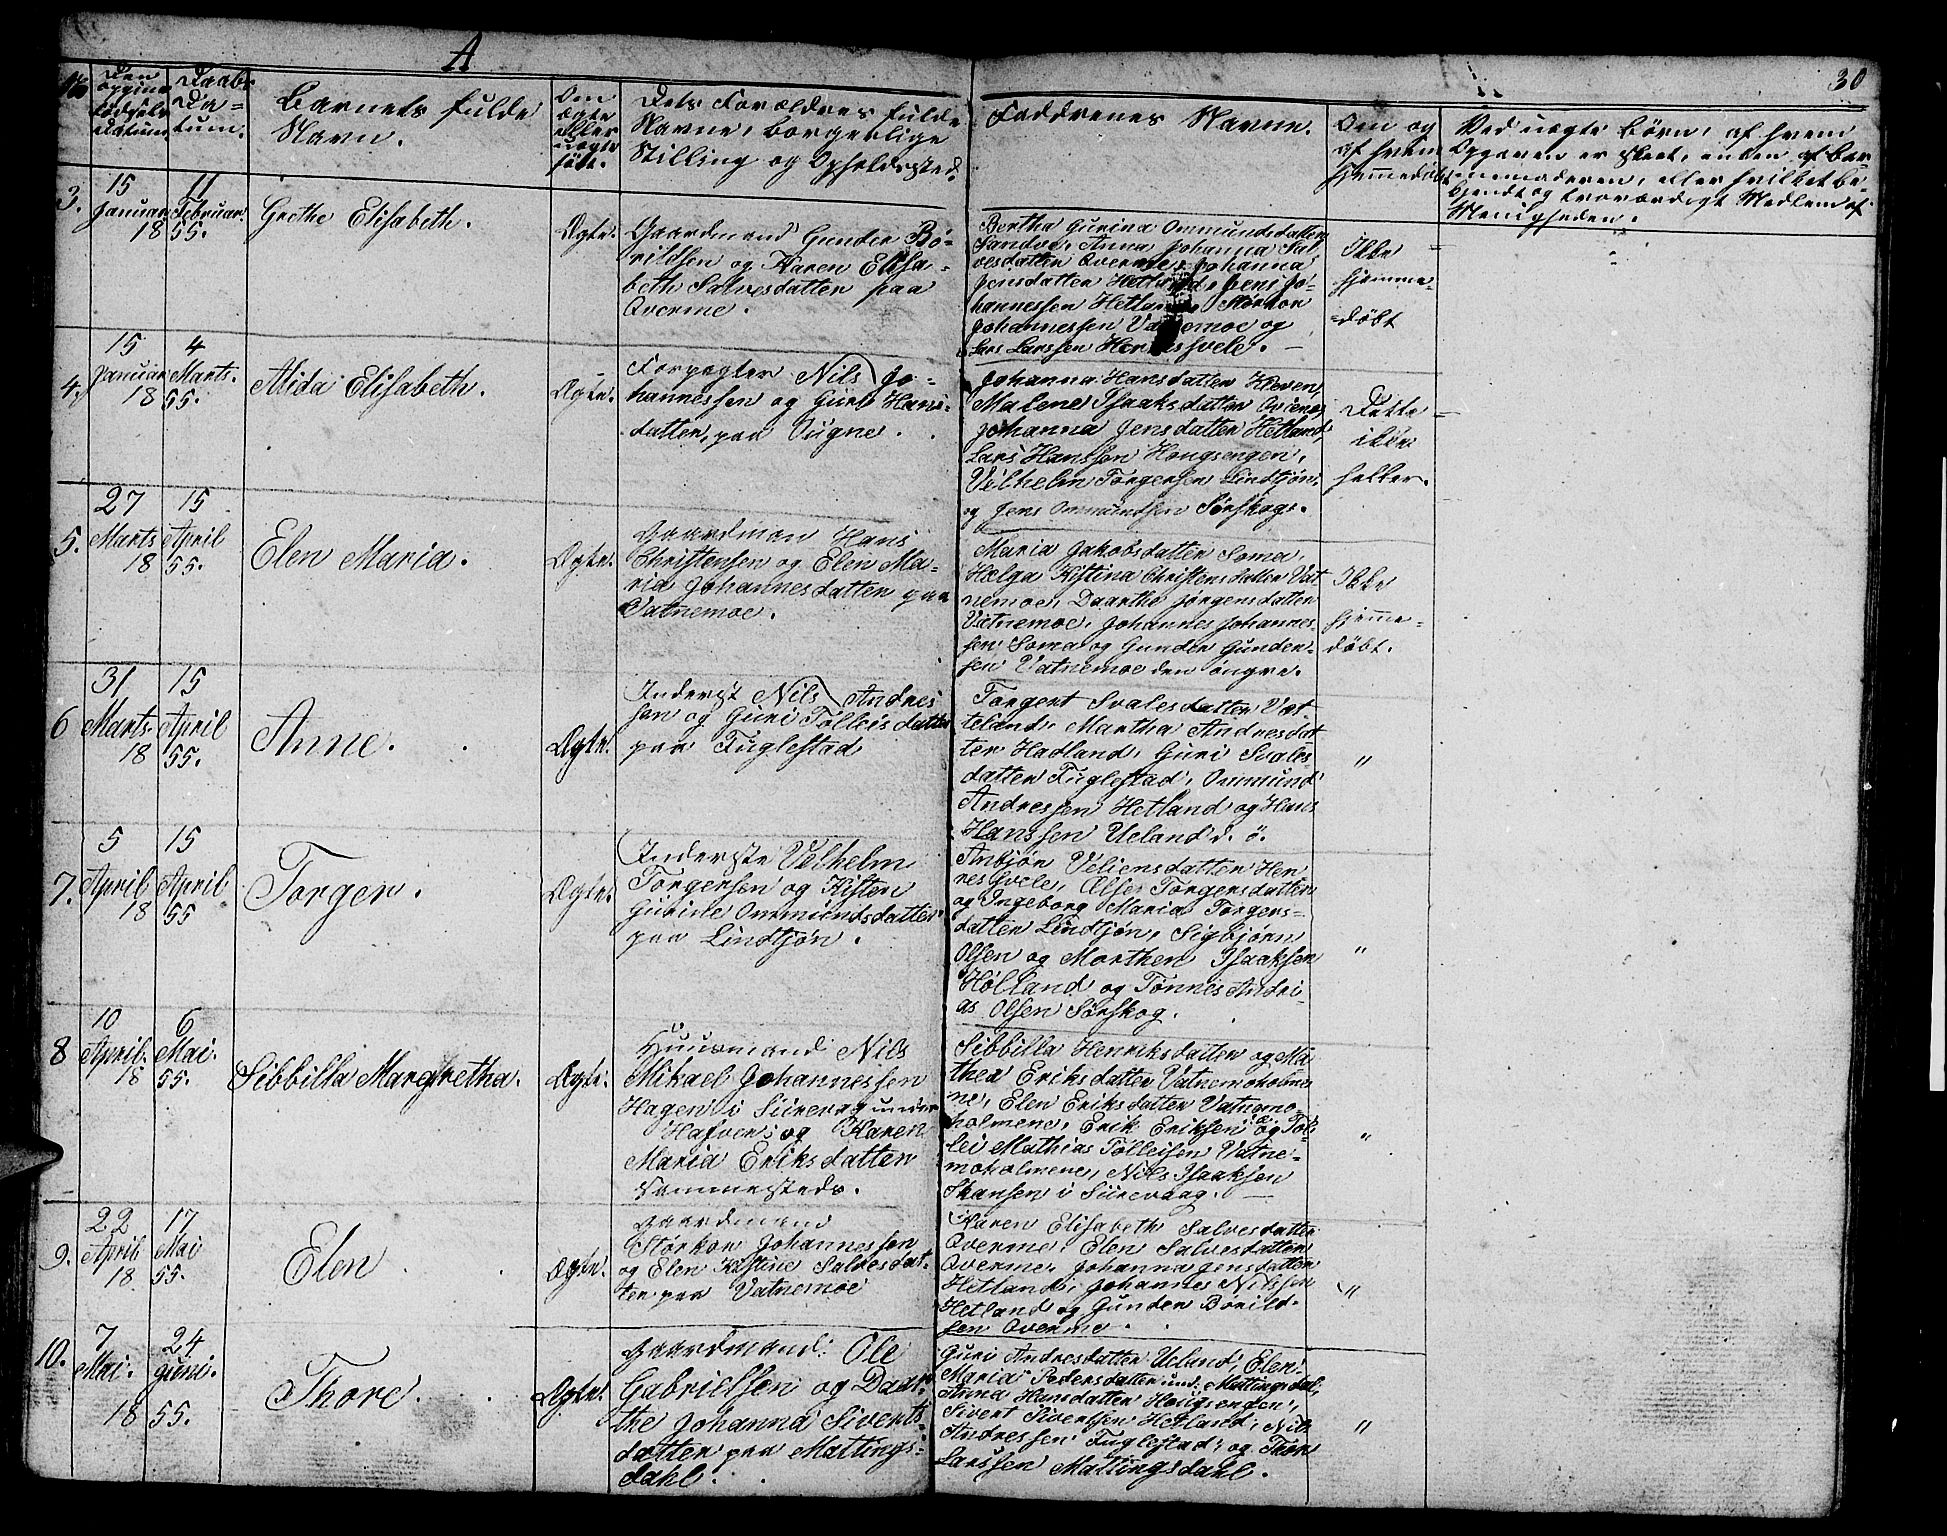 A
30
No
Den
opgivne
Fødsels
datum.
Daabs
Da-
tum.
Barnets fulde
Navn.
Om
ægte
eller
uægte
født.
Dets Forældres fulde
Navne, borgerlige
Stilling og Opholdssted.
Faddrenes Navne.
Om og
af hvem
hjemmedøbt
Ved uægte Børn, af hvem
Opgaven er skeet, enten af Bar-
nemoderen, eller hvilket be-
kjendt og troværdigt Medlem af
Menigheden.
3.
15
Januar
18
11
Februar.
55.
Grethe Elisabeth.
Ægte.
Gaardmand Gunder Bø-
rildsen og Karen Elisa-
beth Salvesdatter paa
Qverme.
Bertha Gurina Ommundsdatter
Sandøe, Anna Johanna Sal
vesdatter Qverme, Johanna
Jensdatter Hetland, Jens Jo-
hannessen Hetland, Størkor
Johannessen Vatnemoe og
Lars Larssen Hennessvele. —
Ikke
hjemme-
døbt
4.
15
Januar
18
4
Marts.
55.
Alida Elisabeth.
Ægte.
Forpagter Nils Jo-
hannessen og Guri Hans-
datter, paa Qugne.
Johanna Hansdatter Kleven,
Malene Isaaksdatter
Johanna Jensdatter Hetland,
Lars Hanssen Hougsengen,
Vilhelm Torgersen Lindtjøn,
og Jens Ommundsen Sørskog.
Dette
ikke
heller.
5.
27
Marts
18
15
April
55.
Elen Maria.
Ægte.
Gaardman Hans
Christensen og Elen Ma-
ria Johannesdatter paa
Vatnemoe.
Maria Jakobsdatter Soma,
Helga Kistina Christensdatter Vat
nemoe, Daarthe Jørgensdatter
Vatnemoe, Johannes Johannes-
sen Soma og Gunder Gunder-
sen Vatnemoe den öngre.
Ikke
hjemme-
døbt.
6
31
Marts
18
15
April
55.
Anne.
Ægte.
Inderst Nils Andres
sen og Guri Tølleisdatter
paa Fuglestad
Torgert Svalesdatter Vat
teland, Martha Andresdat
ter Hadland, Guri Svales-
datter Fuglestad, Ommund
Andressen Hetland og Hans
Hanssen Ueland d. ö.
"
7.
5
April
18
15
April
55
Torger.
Ægte.
Inderste Velhelm
Torgersen og Kisten
Gurine Ommundsdatter
paa Lindtjøn.
Anbjør Veliensdatter Hen
nessvele, Ælse Torgersdatter
og Ingeborg Maria Torgers-
datter Lindtjøn, Sigbjørn
Olsen og Morthen Isaaksen
Hølland og Tønnes Andri-
as Olsen Sørskog.
"
8
10
April.
18
6
Mai.
55.
Sibbilla Margretha.
Ægte.
Huusmand Nils
Mikael Johannessen
Hagen i Siirevog under
Hafver: og Karen
Maria Eriksdatter
sammesteds.
Sibbilla Henriksdatter og Ma-
thea Eriksdatter Vatnemoholme
ne, Elen Eriksdatter Vatnemo-
holmene, Erik Eriksen og Tøl-
lei Mathias Tølleisen Vatne-
moholmene, Nils Isaaksen
Skansen i Siirevaag. —
"
9.
22
April
18
17
Mai
55.
Elen
Ægte.
Gaardmand
Størkor Johannessen
og Elen Kistine Salvesdat-
ter paa Vatnemoe
Karen Elisabeth Salvesdatter
Qverme, Elen Salvesdatter
Qverme, Johanna Jensdatter
Hetland, Johannes Nilssen
Hetland og Gunder Børild-
sen Qverme.
"
10.
7
Mai.
18
24
Juni.
55.
Thore.
Ægte.
Gaardmand: Ole
Gabrielsen og Daar-
the Johanna Siverts-
datter paa Mattings-
dahl.
Guri Andresdatter Ueland, Elen
Maria Pedersdatter und. Mattingsdal,
Anna Hansdatter Hougsenden,
Sivert Siverssen Hetland, Nils
Andressen Fuglestad, og Thore
Larssen Mattingsdahl.
"